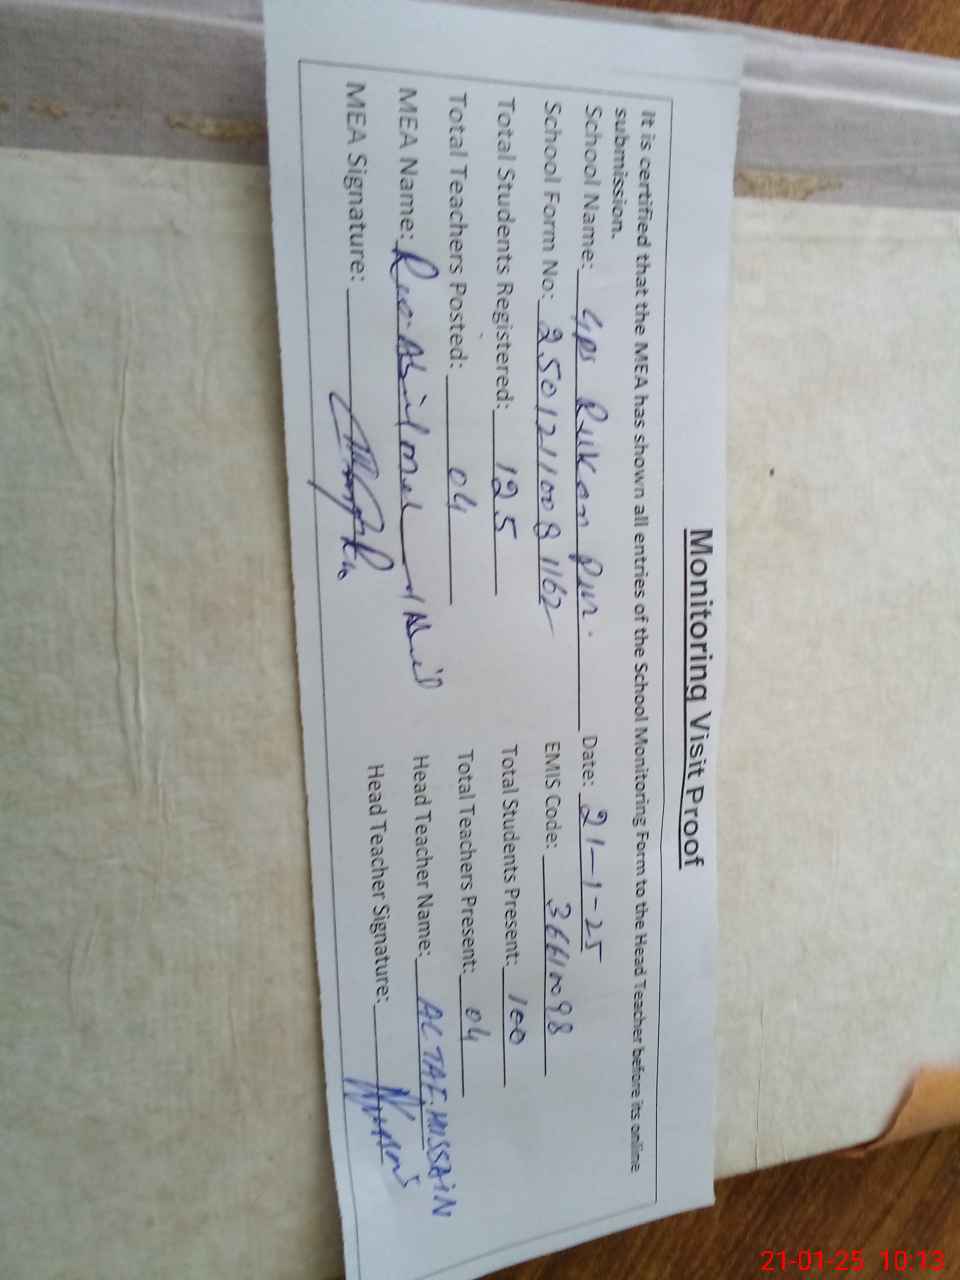 Monitoring Visit Proof
It is certified that the MEA has shown all entries of the School Monitoring Form to the Head Teacher before its online
submission.
School Name: GPS Rukan Pur. Date: 21-1-25
School Form No: 2501211008 1162 EMIS Code: 36610098
Total Students Registered: 125 Total Students Present: 100
Total Teachers Posted: 04 Total Teachers Present: 04
MEA Name: Head Teacher Name: ALTAF.HUSSAIN
MEA Signature: Head Teacher Signature:
21-01-25 10:13